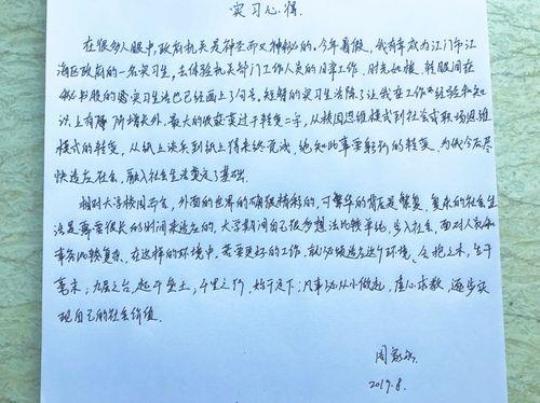 实习心得.
在很多人眼中,政府机关是神圣而又神秘的。今年暑假,我有幸成为江门市江
海区政府的一名实习生,去体验机关部门工作人员的日常工作。时光如梭,转眼间在
秘书股的实习生活已经画上了句号。短暂的实习生活除了让我在工作经验和知
识上有所增长外,最大的收获莫过于转变二字,从校园思维模式到社会或职场思维
模式的转变,从纸上谈兵到纸上得来终觉浅,绝知此事要躬行的转变。为我今后尽
快适应社会,融入社会生活奠定了基础.
相对大学校园而言,外面的世界的确很精彩的,可繁华的背后是繁复.复杂的社会生
活是需要很长的时间来适应的,大学期间自己很多想法比较单纯,步入社会,面对人和
事会比较复杂.在这样的环境中,若要更好的工作,就必须适应这个环境、合抱之木,生于
毫末;九层之台,起于垒土;千里之行,始于足下;凡事必从小做起,虚心求教,逐步实
现自己的社会价值.
周
2019.8.